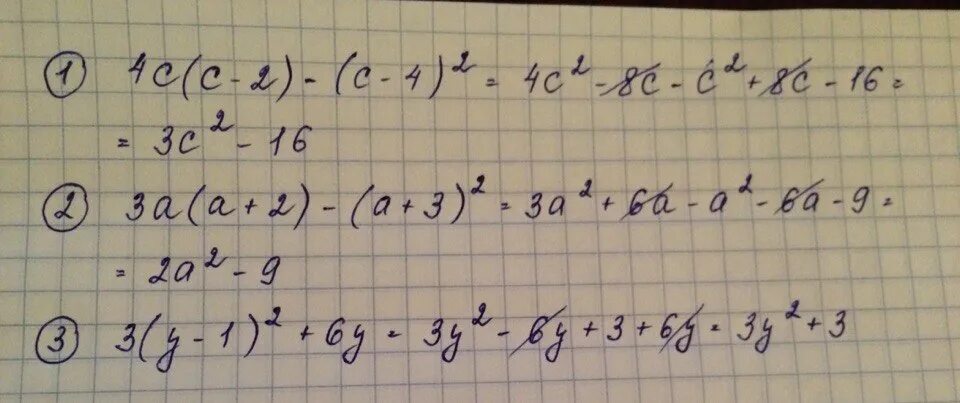 ① 4c(c-2)-(c-4)² = 4c²-8c-c²+8c-16=
= 3c²-16
② 3a(a+2)-(a+3)² = 3a²+6a-a²-6a-9=
= 2a²-9
③ 3(y-1)²+6y = 3y²-6y+3+6y = 3y²+3